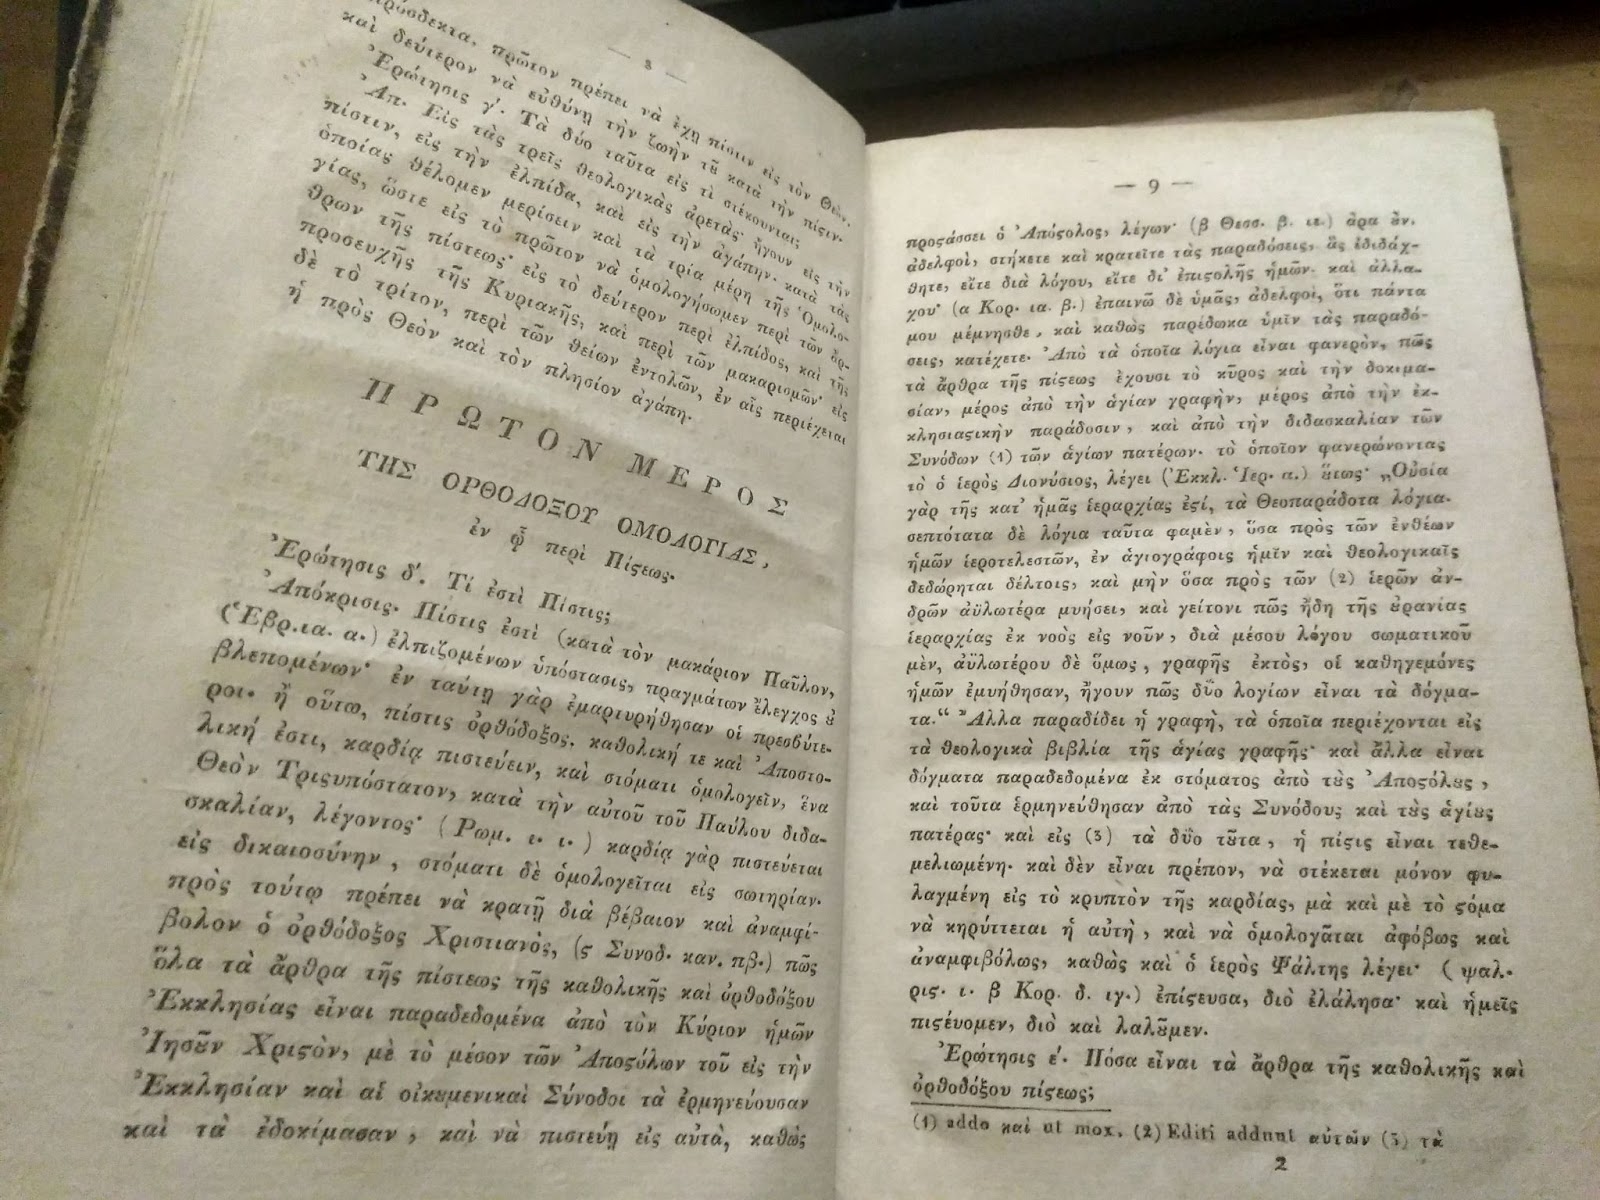 — 8 —
πρόσδεκτα, πρῶτον πρέπει νὰ ἔχῃ πίσιν εἰς τὸν Θεὸν,
καὶ δεύτερον νὰ εὐθύνῃ τὴν ζωὴν τȣ κατὰ τὴν πίϛιν.
Ἐρώτησις γ'. Τὰ δύο ταῦτα εἰς τὶ στέκουνται;
Ἀπ. Εἰς τὰς τρεῖς θεολογικὰς ἀρετάς· ἤγουν εἰς τὴν
πίστιν, εἰς τὴν ἐλπίδα, καὶ εἰς τὴν ἀγάπην. κατὰ τὰς
ὁποίας θέλομεν μερίσειν καὶ τὰ τρία μέρη τῆς Ὁμολο-
γίας, ὥστε εἰς τὸ πρῶτον νὰ ὁμολογήσωμεν περὶ τῶν ἄρ-
θρων τῆς πίστεως· εἰς τὸ δεύτερον περὶ ἐλπίδος, καὶ τῆς
προσευχῆς τῆς Κυριακῆς, καὶ περὶ τῶν μακαρισμῶν· εἰς
δὲ τὸ τρίτον, περὶ τῶν θείων ἐντολῶν, ἐν αἷς περιέχεται
ἡ πρὸς Θεὸν καὶ τὸν πλησίον ἀγάπη.
ΠΡΩΤΟΝ ΜΕΡΟΣ
ΤΗΣ ΟΡΘΟΔΟΞΟΥ ΟΜΟΛΟΓΙΑΣ,
ἐν ᾧ περὶ Πίϛεως.
Ἐρώτησις δ'. Τί ἐστὶ Πίστις;
Ἀπόκρισις· Πίστις ἐστὶ (κατὰ τὸν μακάριον Παῦλον,
(Ἑβρ. ια. α.) ἐλπιζομένων ὑπόστασις, πραγμάτων ἔλεγχος ȣ
βλεπομένων· ἐν ταύτῃ γὰρ ἐμαρτυρήθησαν οἱ πρεσβύτε-
ροι. ἢ οὕτω, πίστις ὀρθόδοξος, καθολική τε καὶ Ἀποστο-
λική ἐστι, καρδίᾳ πιστεύειν, καὶ στόματι ὁμολογεῖν, ἕνα
Θεὸν Τριϛυπόστατον, κατὰ τὴν αὐτοῦ τοῦ Παύλου διδα-
σκαλίαν, λέγοντος· (Ρωμ. ι. ι.) καρδίᾳ γὰρ πιστεύεται
εἰς δικαιοσύνην, στόματι δὲ ὁμολογεῖται εἰς σωτηρίαν.
πρὸς τούτῳ πρέπει νὰ κρατῇ διὰ βέβαιον καὶ ἀναμφί-
βολον ὁ ὀρθόδοξος Χριστιανὸς, (ϛ Συνοδ. καν. πβ.) πῶς
ὅλα τὰ ἄρθρα τῆς πίστεως τῆς καθολικῆς καὶ ὀρθοδόξου
Ἐκκλησίας εἶναι παραδεδομένα ἀπὸ τὸν Κύριον ἡμῶν
Ἰησȣν Χριϛὸν, μὲ τὸ μέσον τῶν Ἀποϛόλων τοῦ εἰς τὴν
Ἐκκλησίαν καὶ αἱ οἰκȣμενικαὶ Σύνοδοι τὰ ἐρμηνεύουσαν
καὶ τὰ ἐδοκίμασαν, καὶ νὰ πιστεύῃ εἰς αὐτὰ, καθὼς
— 9 —
προϛάσσει ὁ Ἀπόϛολος, λέγων· (β Θεσσ. β. ιε.) ἄρα ὂν,
ἀδελφοὶ, στήκετε καὶ κρατεῖτε τὰς παραδόσεις, ἃς ἐδιδάχ-
θητε, εἴτε διὰ λόγου, εἴτε δι' ἐπιϛολῆς ἡμῶν. καὶ ἀλλα-
χου· (α Κορ. ια. β.) ἐπαινῶ δὲ ὑμᾶς, ἀδελφοὶ, ὅτι πάντα
μου μέμνησθε, καὶ καθὼς παρέδωκα ὑμῖν τὰς παραδό-
σεις, κατέχετε. Ἀπὸ τὰ ὁποῖα λόγια εἶναι φανερὸν, πῶς
τὰ ἄρθρα τῆς πίϛεως ἔχουσι τὸ κῦρος καὶ τὴν δοκιμα-
σίαν, μέρος ἀπὸ τὴν ἁγίαν γραφὴν, μέρος ἀπὸ τὴν ἐκ-
κλησιαϛικὴν παράδοσιν, καὶ ἀπὸ τὴν διδασκαλίαν τῶν
Συνόδων (1) τῶν ἁγίων πατέρων. τὸ ὁποῖον φανερώνοντας
τὸ ὁ ἱερὸς Διονύσιος, λέγει (Ἐκκλ. Ἱερ. α.) ȣτως· „Οὐσία
γὰρ τῆς κατ' ἡμᾶς ἱεραρχίας ἐϛί, τὰ Θεοπαράδοτα λόγια.
σεπτότατα δὲ λόγια ταῦτα φαμὲν, ὅσα πρὸς τῶν ἐνθέων
ἡμῶν ἱεροτελεστῶν, ἐν ἁγιογράφοις ἡμῖν καὶ θεολογικαῖς
δεδώρηται δέλτοις, καὶ μὴν ὅσα πρὸς τῶν (2) ἱερῶν ἀν-
δρῶν ἀϋλωτέρα μυήσει, καὶ γείτονι πῶς ἤδη τῆς ȣρανίας
ἱεραρχίας ἐκ νοὸς εἰς νοῦν, διὰ μέσου λόγου σωματικοῦ
μὲν, ἀϋλωτέρου δὲ ὅμως, γραφῆς ἐκτὸς, οἱ καθηγεμόνες
ἡμῶν ἐμυήθησαν, ἤγουν πῶς δύο λογίων εἶναι τὰ δόγμα-
τα.“ Ἄλλα παραδίδει ἡ γραφὴ, τὰ ὁποῖα περιέχονται εἰς
τὰ θεολογικὰ βιβλία τῆς ἁγίας γραφῆς· καὶ ἄλλα εἶναι
δόγματα παραδεδομένα ἐκ στόματος ἀπὸ τȣς Ἀποϛόλȣς,
καὶ τοῦτα ἑρμηνεύθησαν ἀπὸ τὰς Συνόδους καὶ τȣς ἁγίȣς
πατέρας· καὶ εἰς (3) τὰ δύο τȣτα, ἡ πίϛις εἶναι τεθε-
μελιωμένη. καὶ δὲν εἶναι πρέπον, νὰ στέκεται μόνον φυ-
λαγμένη εἰς τὸ κρυπτὸν τῆς καρδίας, μὰ καὶ μὲ τὸ ϛόμα
νὰ κηρύττεται ἡ αὐτὴ, καὶ νὰ ὁμολογᾶται ἀφόβως καὶ
ἀναμφιβόλως, καθὼς καὶ ὁ ἱερὸς Ψάλτης λέγει· (ψαλ.
ριϛ. ι. β Κορ. δ. ιγ.) ἐπίϛευσα, διὸ ἐλάλησα· καὶ ἡμεῖς
πιϛέυομεν, διὸ καὶ λαλȣμεν.
Ἐρώτησις ε'. Πόσα εἶναι τὰ ἄρθρα τῆς καθολικῆς καὶ
ὀρθοδόξου πίϛεως;
(1) addo καὶ ut mox. (2) Editi addunt αὐτῶν (3) τὰ
2